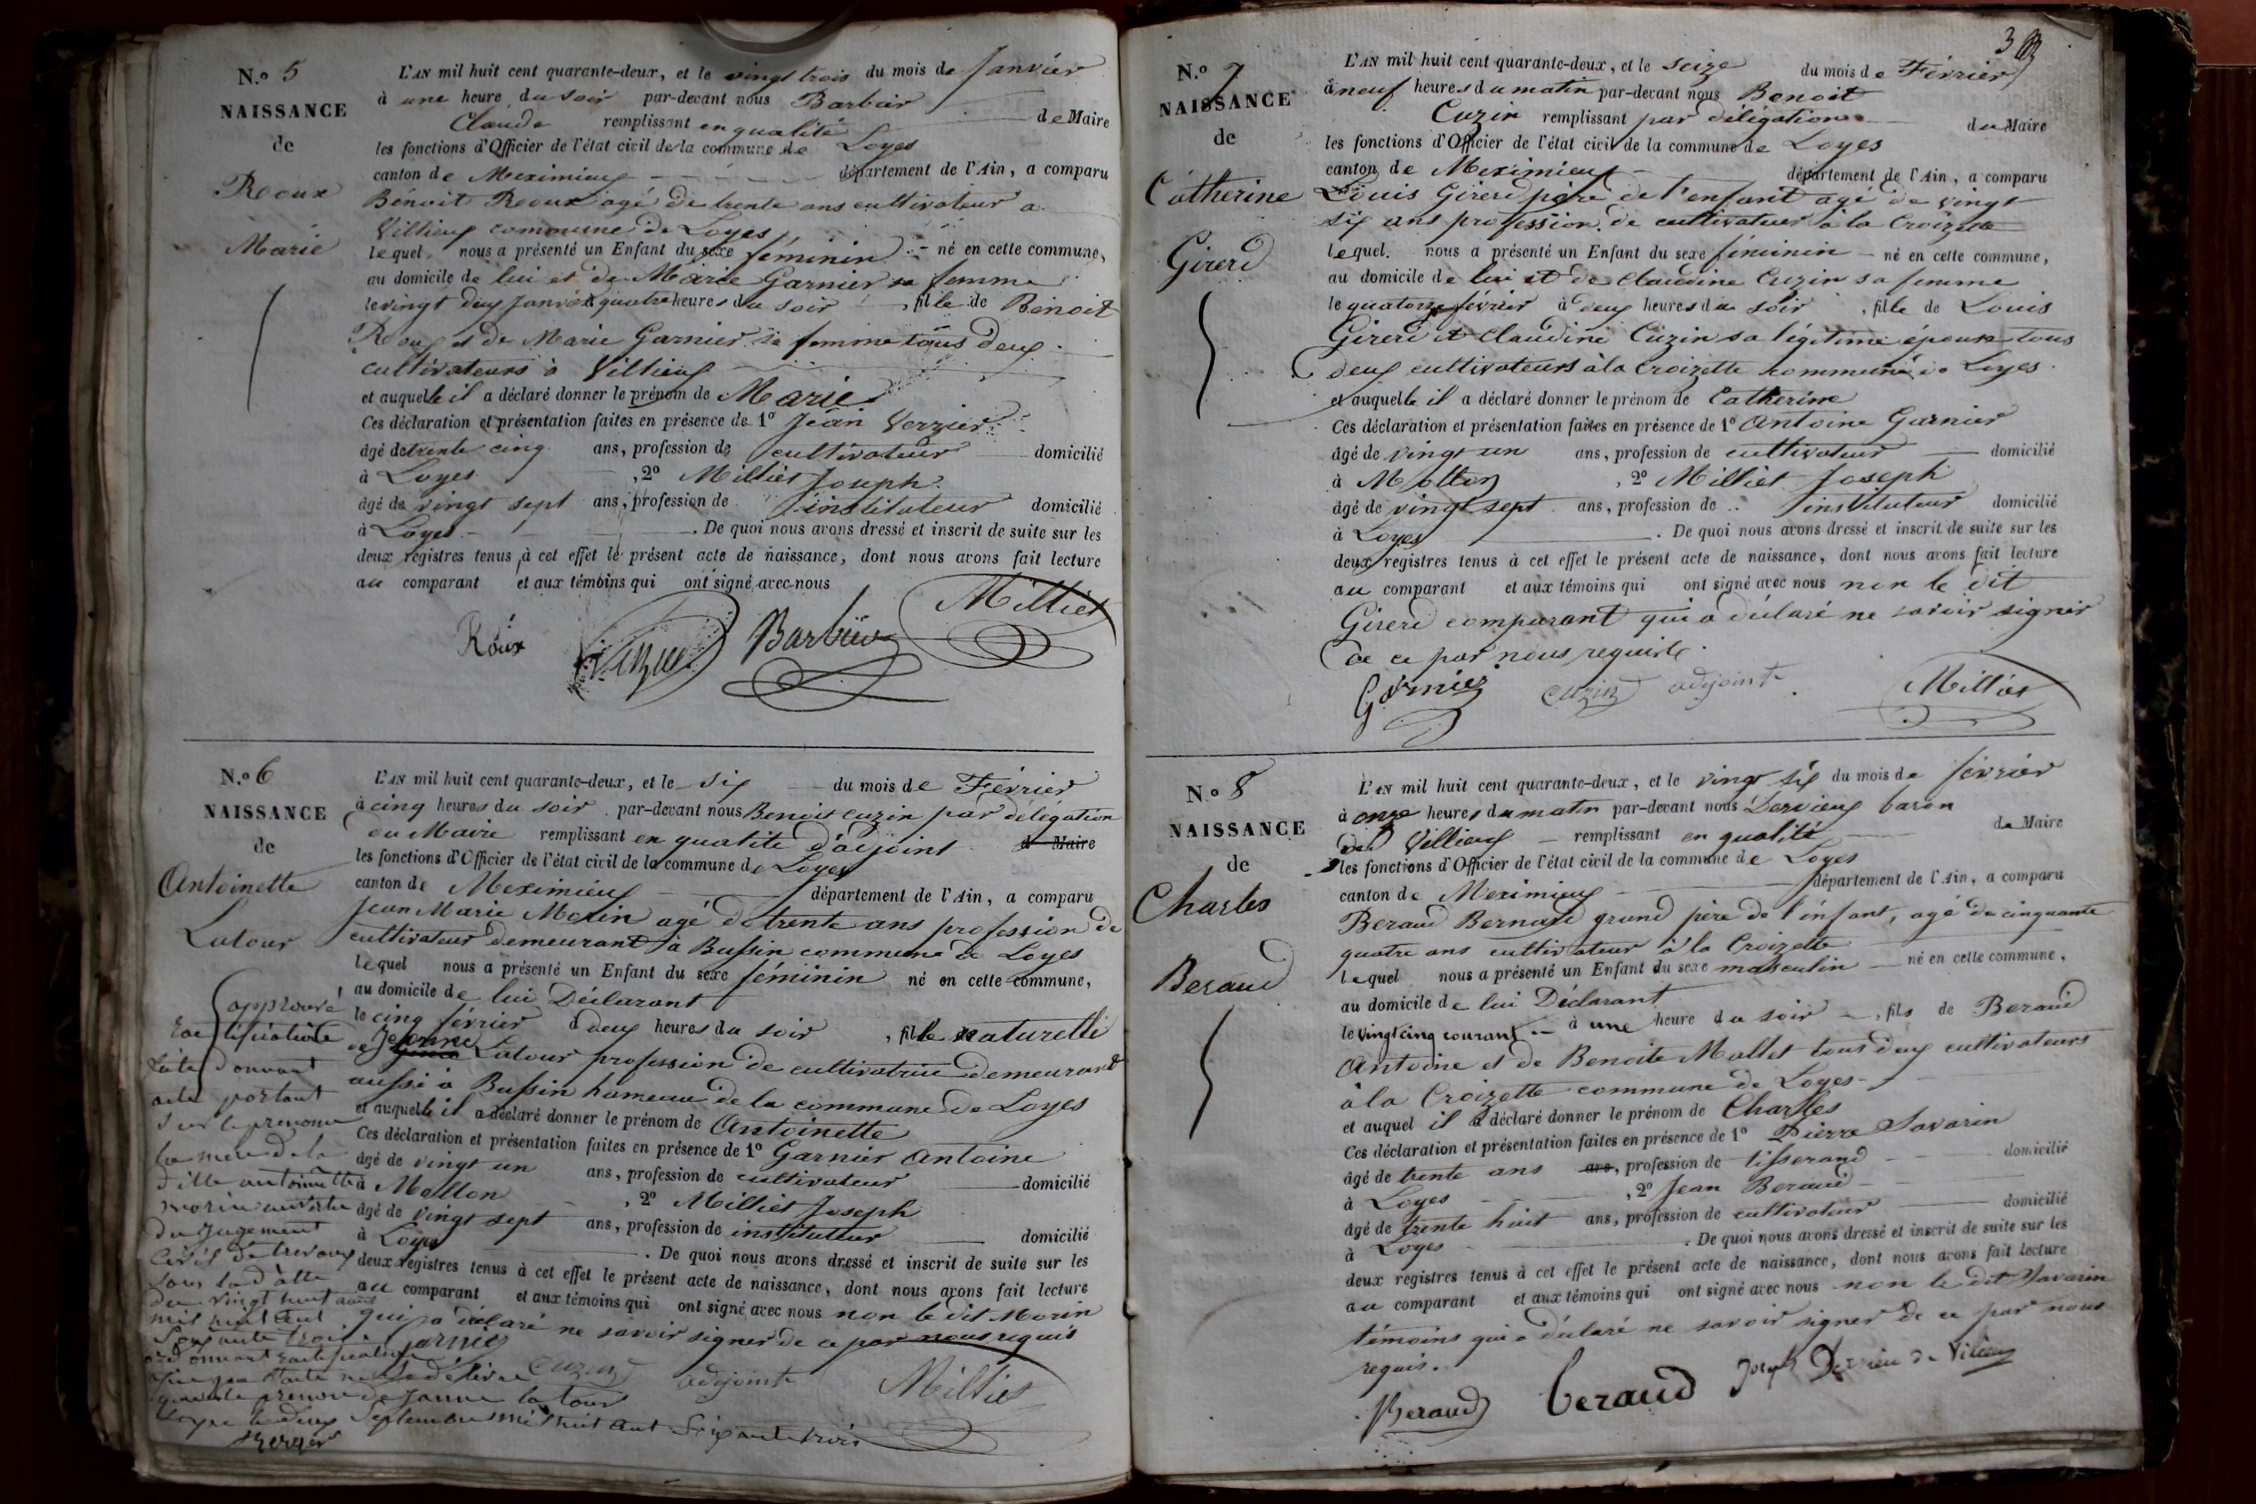 N.o 5
NAISSANCE
de
Roux
Marie
L'AN mil huit cent quarante-deux, et le vingt trois du mois de Janvier
à une heure du soir par-devant nous Barbier
Claude remplissant en qualité de Maire
les fonctions d'Officier de l'état civil de la commune de Loyes
canton de Meximieux département de l'Ain, a comparu
Bénoit Roux agé de trente ans cultivateur a
Villieux commune de Loyes
lequel nous a présenté un Enfant du sexe féminin né en cette commune,
au domicile de lui et de Marie Garnier sa femme
le vingt deux Janvier à quatre heures du soir, fille de Benoit
Roux et de Marie Garnier sa femme tous deux
cultivateurs à Villieux
et auquelle il a déclaré donner le prénom de Marie
Ces déclaration et présentation faites en présence de 1o Jean Verzier
âgé de trente cinq ans, profession de cultivateur domicilié
à Loyes, 2o Milliet Joseph
âgé de vingt sept ans, profession de instituteur domicilié
à Loyes. De quoi nous avons dressé et inscrit de suite sur les
deux registres tenus à cet effet le présent acte de naissance, dont nous avons fait lecture
au comparant et aux témoins qui ont signé avec nous
Roux Barbier Milliet
N.o 6
NAISSANCE
de
Antoinette
Latour
L'AN mil huit cent quarante-deux, et le six du mois de Février
à cinq heures du soir par-devant nous Benoit Cuzin par délégation
du Maire remplissant en qualité d'adjoint d Maire
les fonctions d'Officier de l'état civil de la commune de Loyes
canton de Meximieux département de l'Ain, a comparu
Jean Marie Morin agé de trente ans profession de
cultivateur demeurant à Bussin commune de Loyes
lequel nous a présenté un Enfant du sexe féminin né en cette commune,
au domicile de lui Déclarant
le cinq février à deux heures du soir, fille naturelle
de Jeanne Latour profession de cultivatrice demeurant
aussi à Bussin hameau de la commune de Loyes
et auquelle il a déclaré donner le prénom de Antoinette
Ces déclaration et présentation faites en présence de 1o Garnier Antoine
âgé de vingt un ans, profession de cultivateur domicilié
à Mollon, 2o Milliet Joseph
âgé de vingt sept ans, profession de instituteur domicilié
à Loyes. De quoi nous avons dressé et inscrit de suite sur les
deux registres tenus à cet effet le présent acte de naissance, dont nous avons fait lecture
au comparant et aux témoins qui ont signé avec nous non le dit Morin
qui a déclaré ne savoir signer de ce par nous requis
Garnier Cuzin adjoint Milliet
approuvé
rectification
acte portant
sur le prenom
la mère de la
d'ille antoinette
morin
du Jugement
civil de trevoux
sous la date
du vingt huit aout
mil huit cent
soixante trois
ordonnant rectification
prenom de Janne latour
Loyes le deux Septembre mil huit cent soixante trois
Berger
3
N.o 7
NAISSANCE
de
Catherine
Girerd
L'AN mil huit cent quarante-deux, et le seize du mois de Février
à neuf heures du matin par-devant nous Benoit
Cuzin remplissant par délégation du Maire
les fonctions d'Officier de l'état civil de la commune de Loyes
canton de Meximieux département de l'Ain, a comparu
Louis Girerd père de l'enfant agé de vingt
six ans profession de cultivateur à la Croizette
lequel nous a présenté un Enfant du sexe féminin né en cette commune,
au domicile de lui et de Claudine Cuzin sa femme
le quatorze février à deux heures du soir, fille de Louis
Girerd et Claudine Cuzin sa légitime épouse tous
deux cultivateurs à la Croizette commune de Loyes
et auquelle il a déclaré donner le prénom de Catherine
Ces déclaration et présentation faites en présence de 1o Antoine Garnier
âgé de vingt un ans, profession de cultivateur domicilié
à Mollon, 2o Milliet Joseph
âgé de vingt sept ans, profession de instituteur domicilié
à Loyes. De quoi nous avons dressé et inscrit de suite sur les
deux registres tenus à cet effet le présent acte de naissance, dont nous avons fait lecture
au comparant et aux témoins qui ont signé avec nous non le dit
Girerd comparant qui a déclaré ne savoir signer
de ce par nous requis
Garnier Cuzin adjoint Milliet
N.o 8
NAISSANCE
de
Charles
Beraud
L'AN mil huit cent quarante-deux, et le vingt six du mois de février
à onze heures du matin par-devant nous Dervieux baron
de Villieux remplissant en qualité de Maire
les fonctions d'Officier de l'état civil de la commune de Loyes
canton de Meximieux département de l'Ain, a comparu
Beraud Bernard grand père de l'enfant, agé de cinquante
quatre ans cultivateur à la Croizette
lequel nous a présenté un Enfant du sexe masculin né en cette commune,
au domicile de lui Déclarant
le vingt cinq courant à une heure du soir, fils de Beraud
Antoine et de Benoite Mallet tous deux cultivateurs
à la Croizette commune de Loyes
et auquel il a déclaré donner le prénom de Charles
Ces déclaration et présentation faites en présence de 1o Pierre Savarin
âgé de trente ans ans, profession de tisserand domicilié
à Loyes, 2o Jean Beraud
âgé de trente huit ans, profession de cultivateur domicilié
à Loyes. De quoi nous avons dressé et inscrit de suite sur les
deux registres tenus à cet effet le présent acte de naissance, dont nous avons fait lecture
au comparant et aux témoins qui ont signé avec nous non le dit Savarin
témoins qui a déclaré ne savoir signer de ce par nous
requis.
Beraud beraud Joseph Dervieu de Villieu